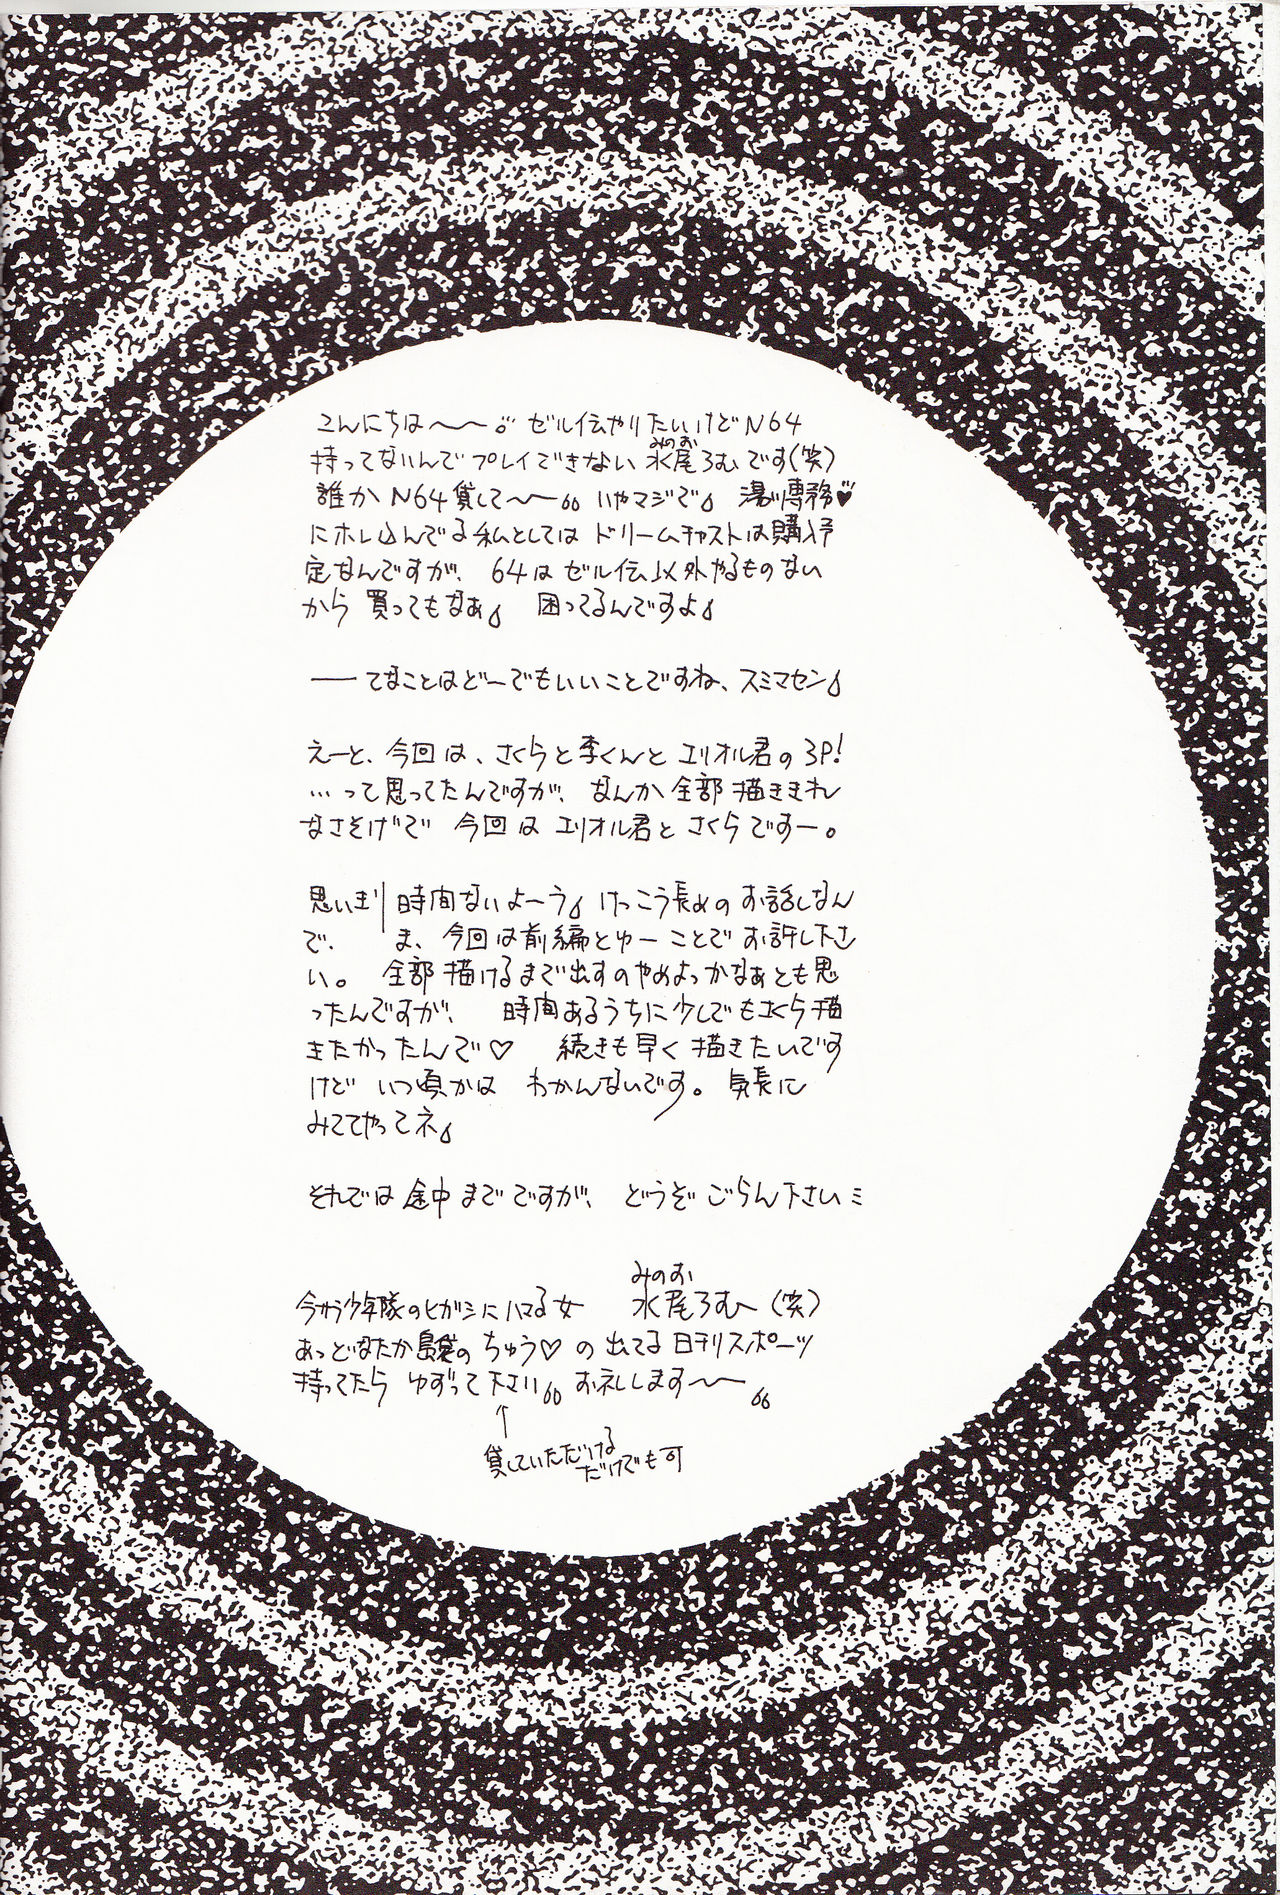 こんにちは〜〜 ゼル伝やりたいけどN64
持ってないんで プレイできない 水尾ろむです(笑)
みのお
誰か N64 貸して〜〜 いやマジで 湯川専務♥
にホレ込んでる私としては ドリームキャストは購入予
定なんですが、 64は ゼル伝以外やるものない
から 買ってもなぁ 困ってるんですよ
── てなことはどーでもいいことですね、スミマセン
えーと、今回は、さくらと李くんと エリオル君の 3P!
…って思ってたんですが、なんか全部描ききれ
なさそげで 今回は エリオル君と さくらですー。
思いきり 時間ないよーう けっこう長めの お話しなん
で、 ま、今回は前編とゆーことで お許し下さ
い。 全部描けるまで出すのやめよっかなぁとも思
ったんですが、 時間あるうちに少しでもさくら描
きたかったんで♡ 続きも早く描きたいです
けど いつ頃かは わかんないです。気長に
みててやってネ
それでは 途中までですが、 どうぞ ごらん下さい
みのお
今さら少年隊のヒガシにハマる女 水尾ろむ〜(笑)
あっどなたか のちゅう♡の出てる日刊スポーツ
持ってたら ゆずって下さい お礼します〜〜
↑
貸していただける
だけでも可